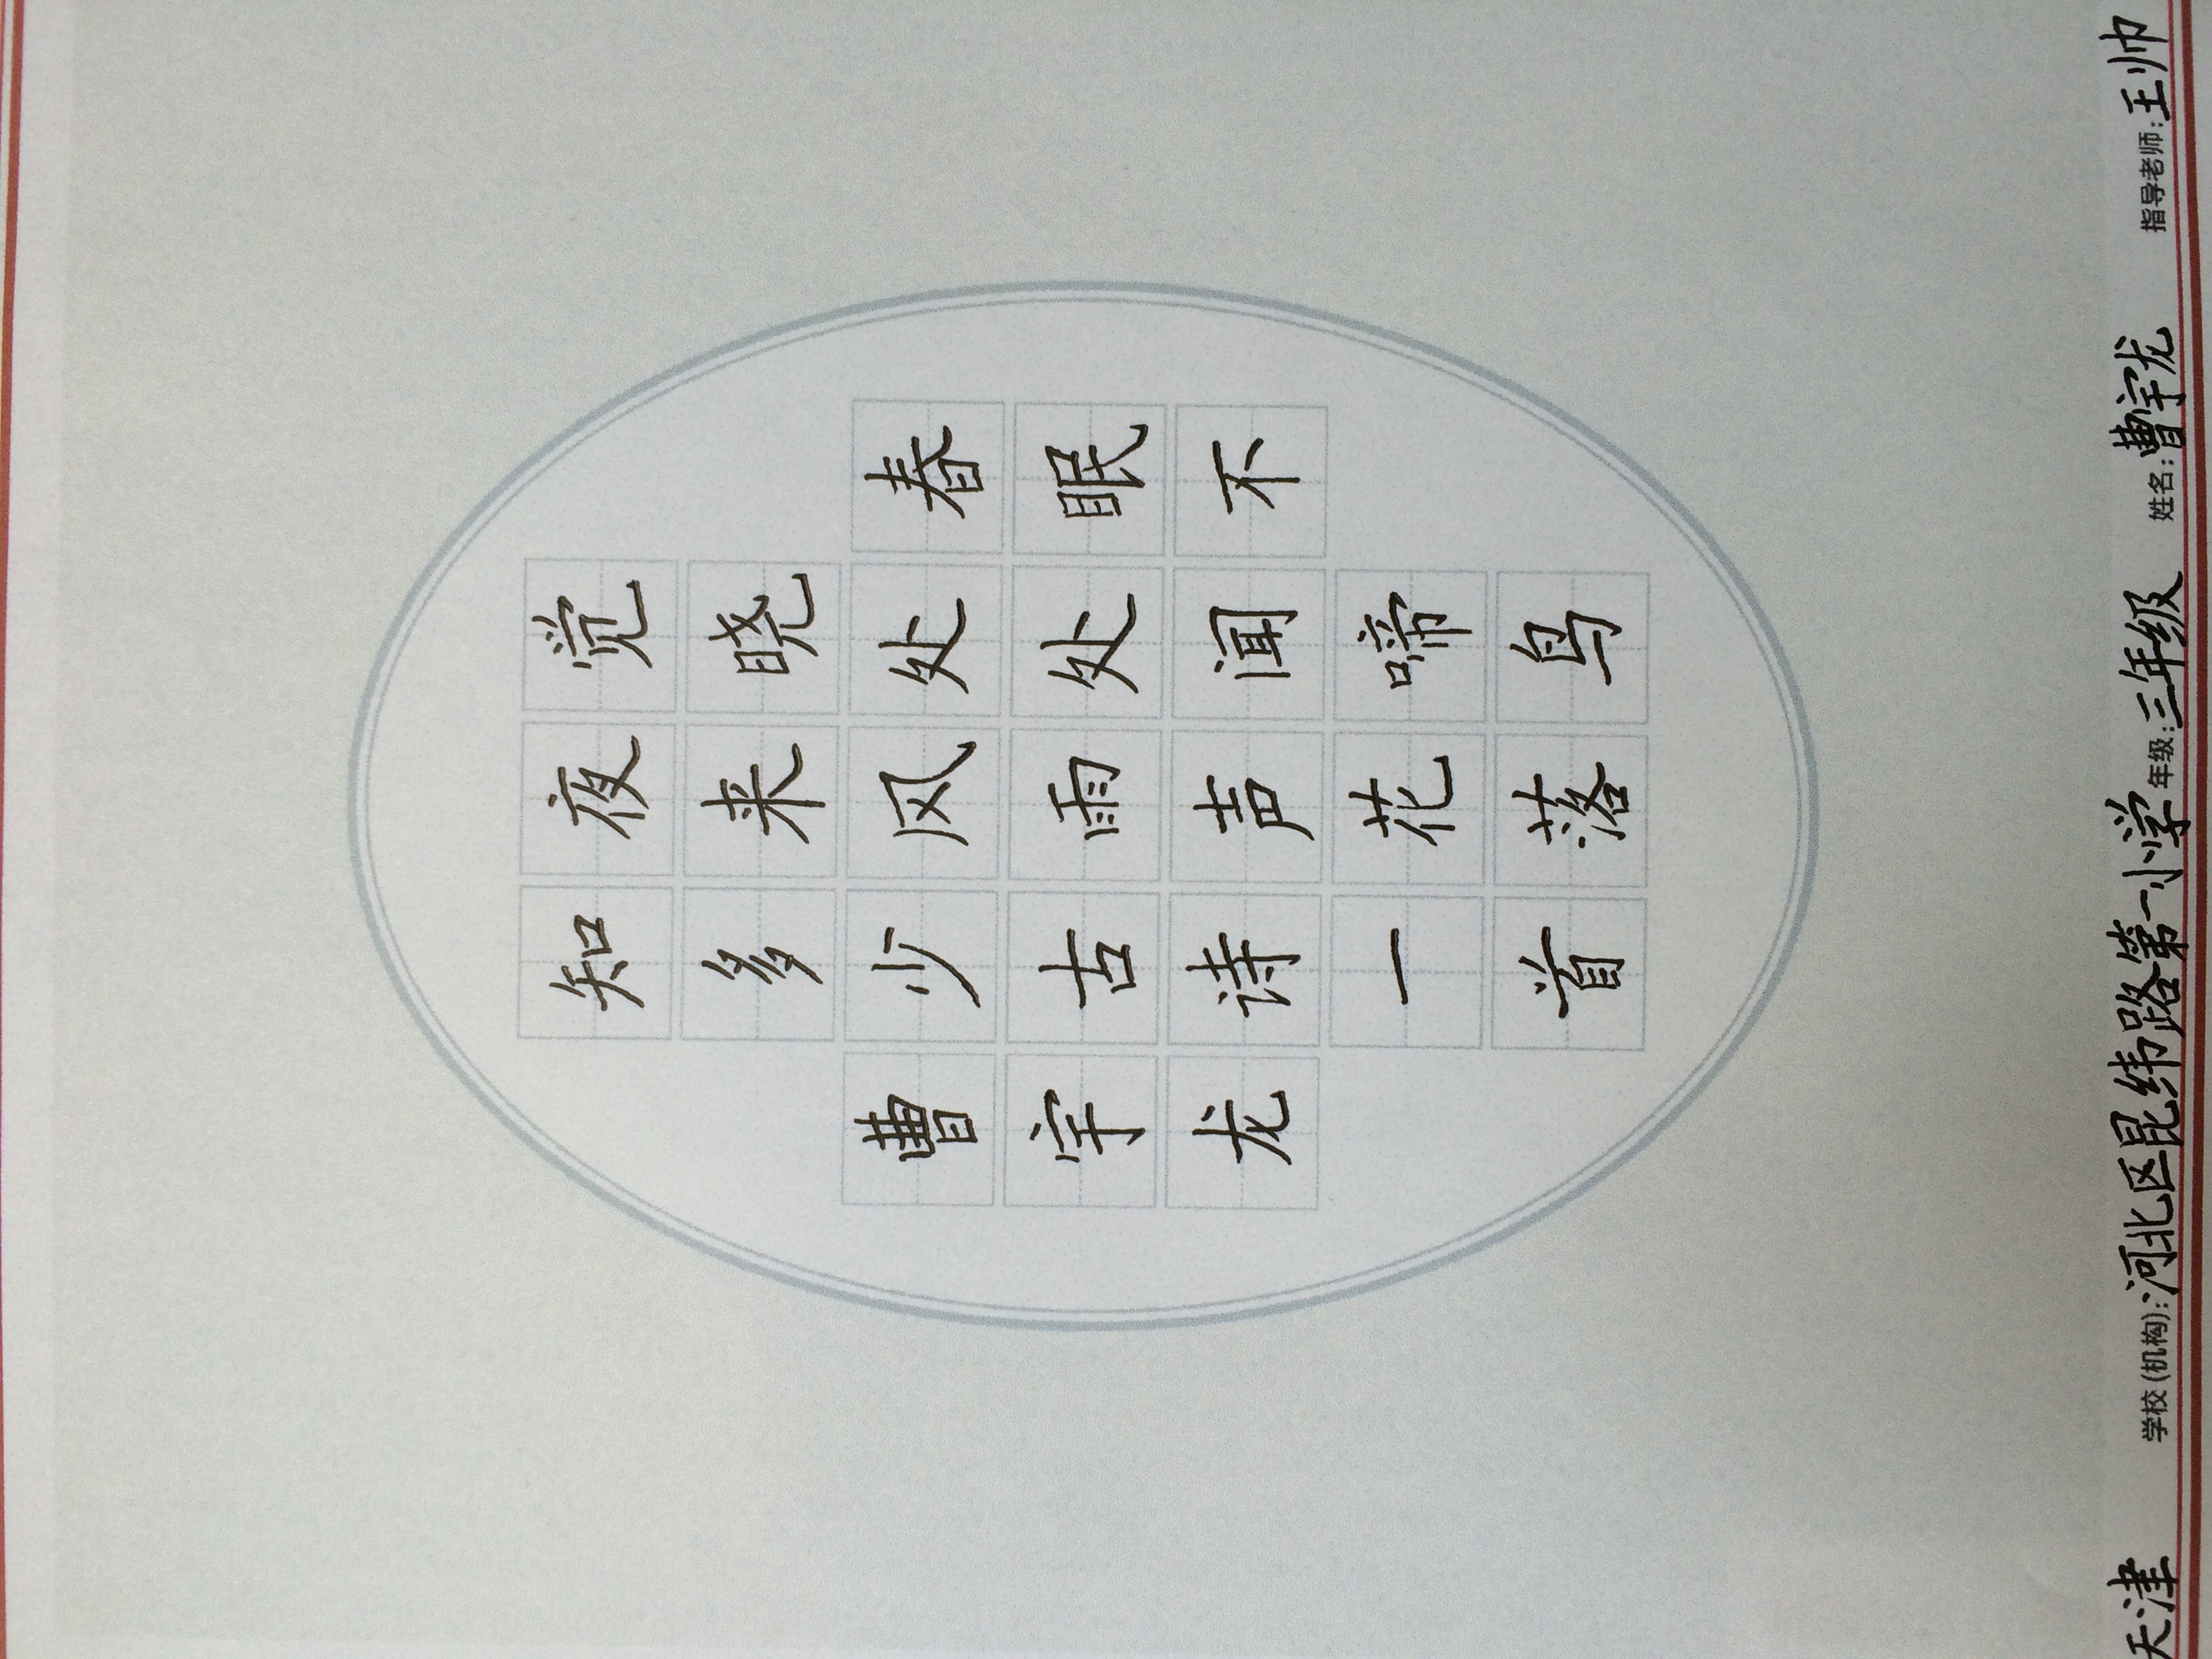 春眠不
觉晓处处闻啼鸟
夜来风雨声花落
知多少古诗一首
曹宇龙
天津 学校(机构):河北区昆纬路第一小学 年级:三年级 姓名:曹宇龙 指导老师:王帅